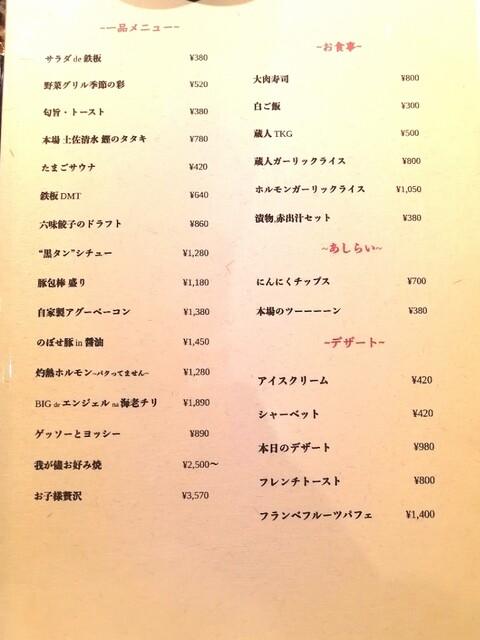 ~一品メニュー~
サラダ de 鉄板 ¥380
野菜グリル季節の彩 ¥520
旬旨・トースト ¥380
本場 土佐清水 鰹のタタキ ¥780
たまごサウナ ¥420
鉄板 DMT ¥640
六味餃子のドラフト ¥860
“黒タン”シチュー ¥1,280
豚包棒 盛り ¥1,180
自家製アグーベーコン ¥1,380
のぼせ豚 in 醤油 ¥1,450
灼熱ホルモン~パクってません~ ¥1,280
BIG de エンジェル na 海老チリ ¥1,890
ゲッソーとヨッシー ¥890
我が儘お好み焼 ¥2,500〜
お子様贅沢 ¥3,570
~お食事~
大肉寿司 ¥800
白ご飯 ¥300
蔵人 TKG ¥500
蔵人ガーリックライス ¥800
ホルモンガーリックライス ¥1,050
漬物,赤出汁セット ¥380
~あしらい~
にんにくチップス ¥700
本場のツーーーーン ¥380
~デザート~
アイスクリーム ¥420
シャーベット ¥420
本日のデザート ¥980
フレンチトースト ¥800
フランベフルーツパフェ ¥1,400